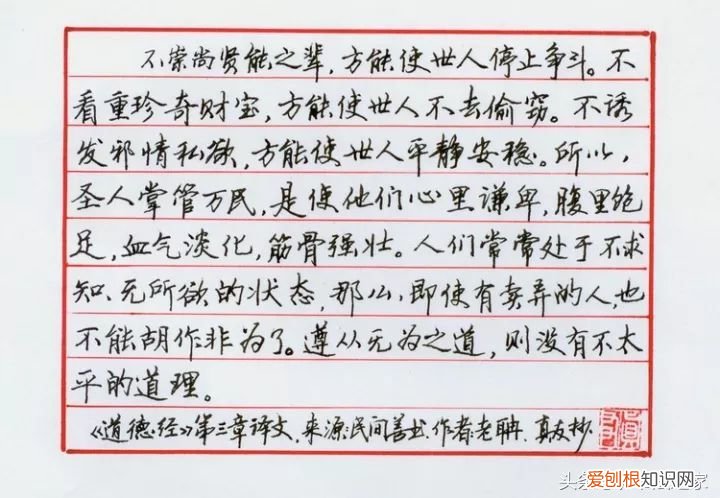 不崇尚贤能之辈，方能使世人停止争斗。不
看重珍奇财宝，方能使世人不去偷窃。不诱
发邪情私欲，方能使世人平静安稳。所以，
圣人掌管万民，是使他们心里谦卑，腹里饱
足，血气淡化，筋骨强壮。人们常常处于不求
知、无所欲的状态，那么，即使有卖弄的人，也
不能胡作非为了。遵从无为之道，则没有不太
平的道理。
《道德经》第三章译文，来源：民间善书，作者：老聃，真友抄。
头条
爱刨根知识网